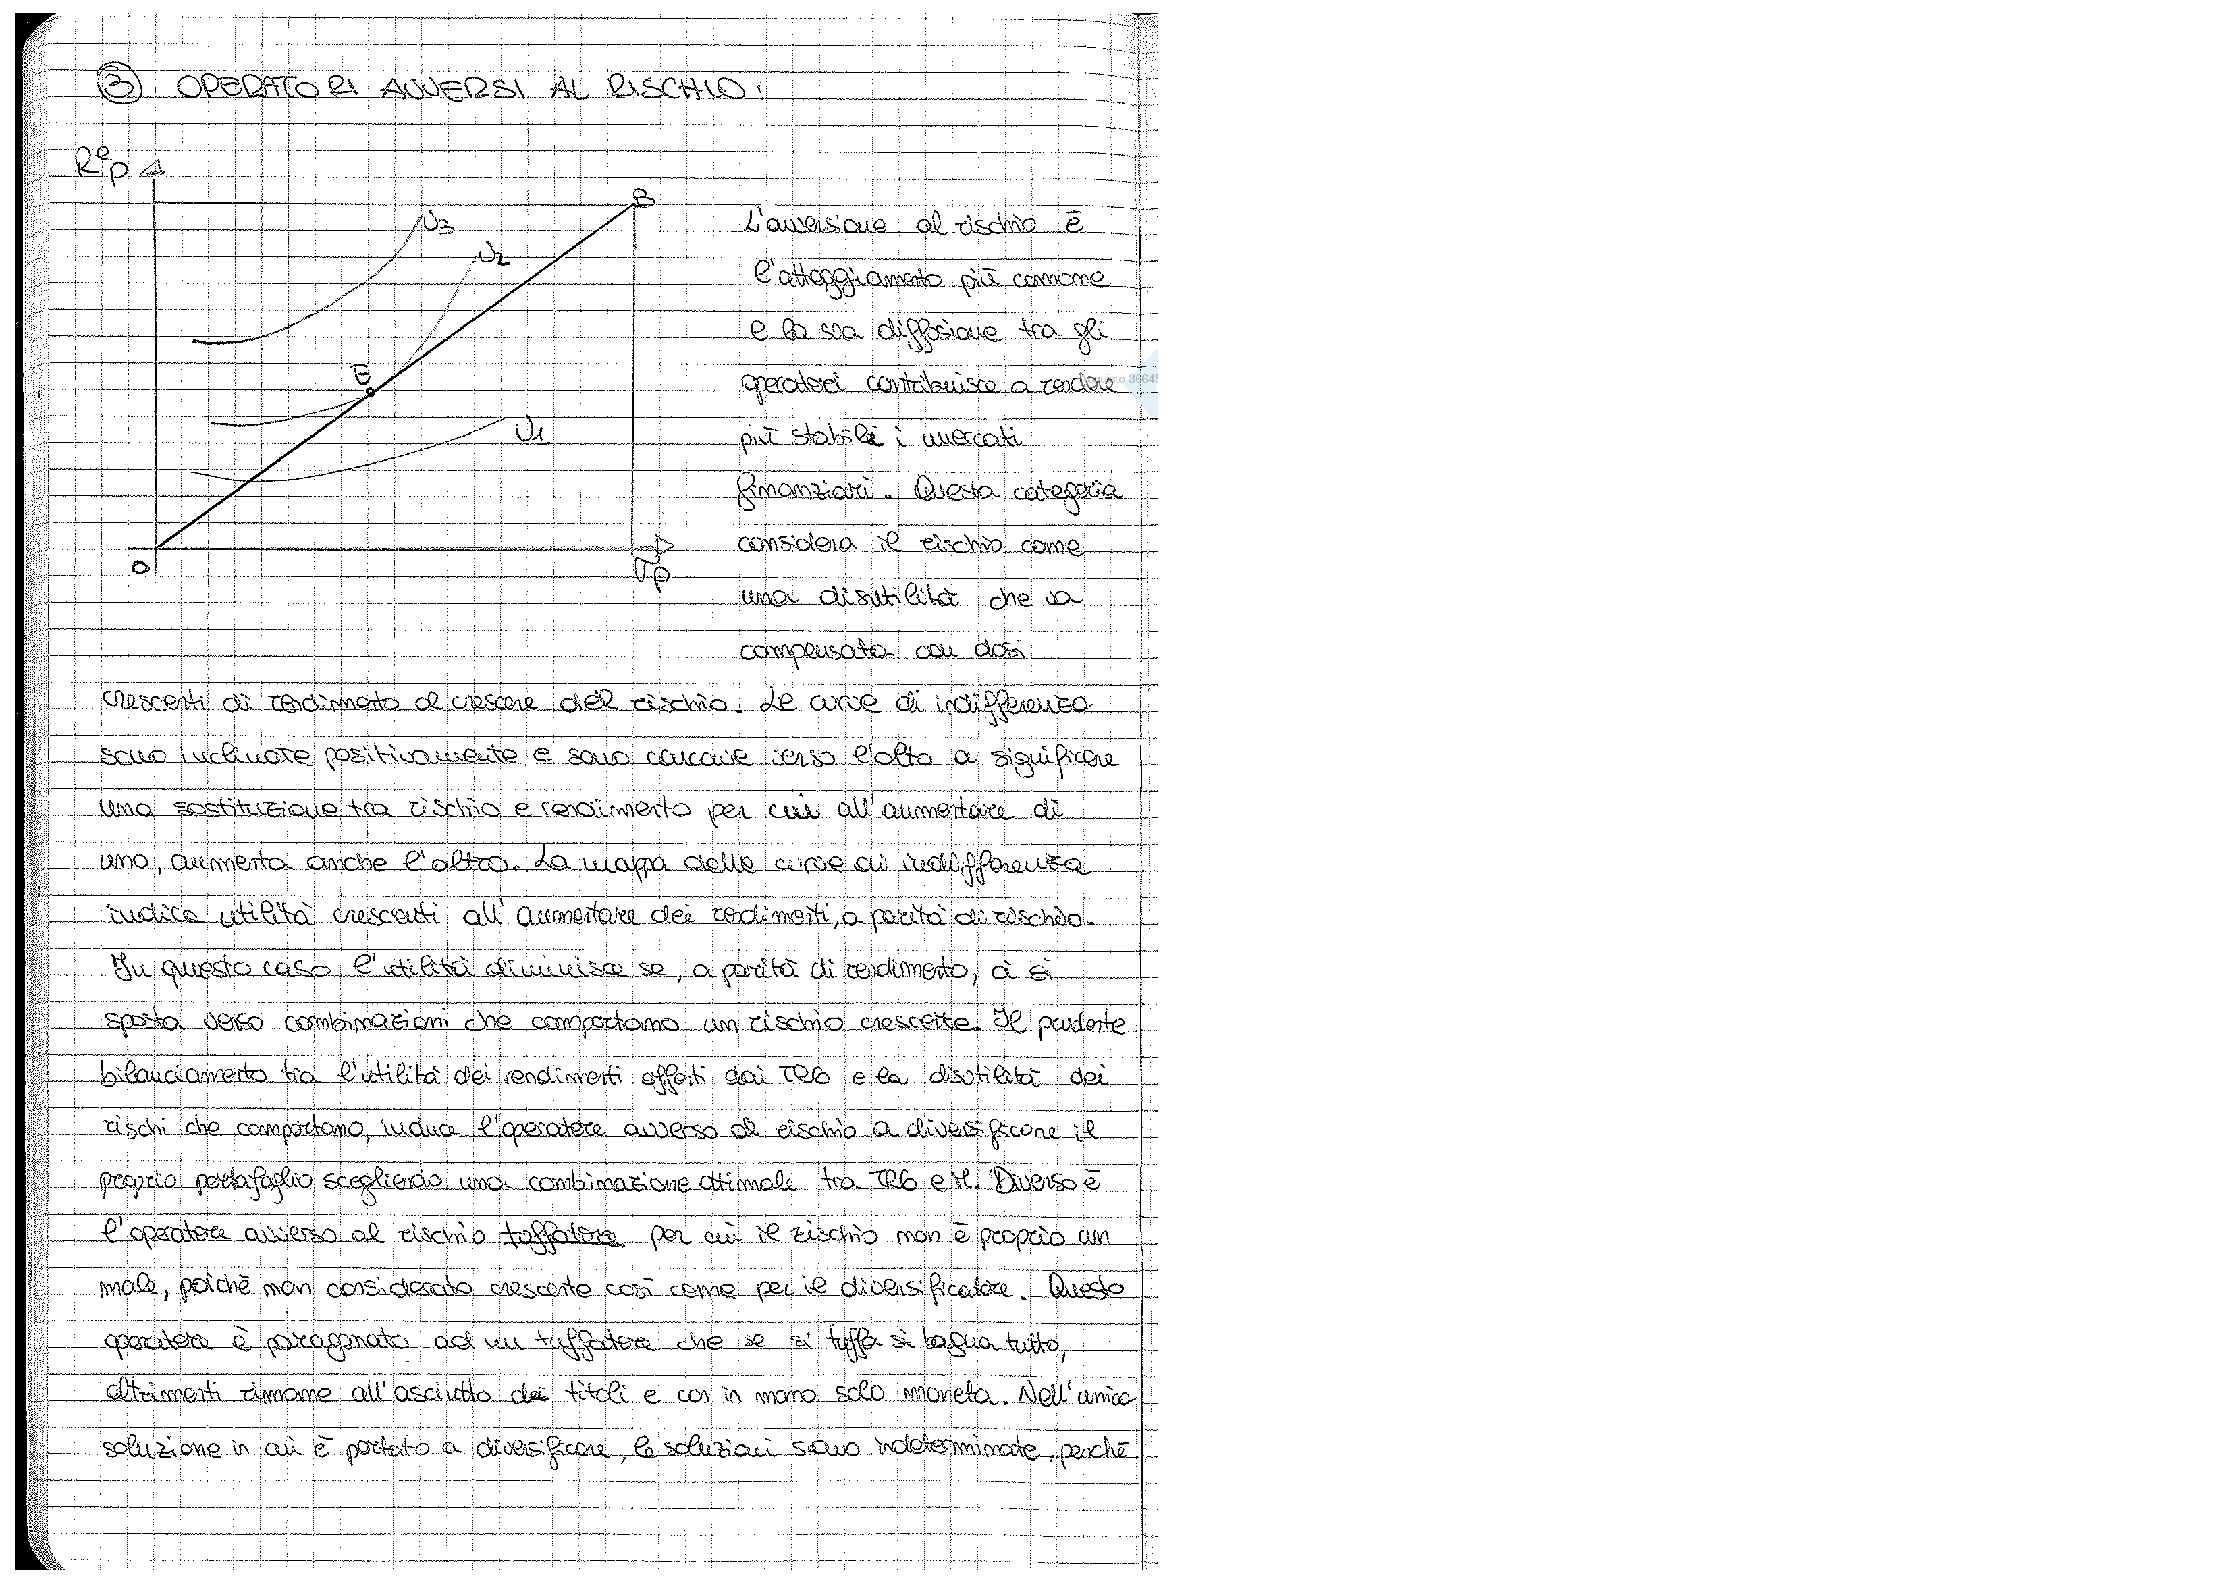 ③ OPERATORI AVVERSI AL RISCHIO.
Rᵉp
B
U3
U2
E
U1
O
σp
L'avversione al rischio è
l'atteggiamento più comune
e la sua diffusione tra gli
operatori contribuisce a rendere
più stabili i mercati
finanziari. Questa categoria
considera il rischio come
una disutilità che va
compensata con dosi
crescenti di rendimento al crescere del rischio. Le curve di indifferenza
sono inclinate positivamente e sono concave verso l'alto a significare
una sostituzione tra rischio e rendimento per cui all'aumentare di
uno, aumenta anche l'altro. La mappa delle curve di indifferenza
indica utilità crescenti all'aumentare dei rendimenti, a parità di rischio.
In questo caso l'utilità diminuisce se, a parità di rendimento, ci si
sposta verso combinazioni che comportano un rischio crescente. Il prudente
bilanciamento tra l'utilità dei rendimenti offerti dai TRG e la disutilità dei
rischi che comportano, induce l'operatore avverso al rischio a diversificare il
proprio portafoglio scegliendo una combinazione ottimale tra TRG e M. Diverso è
l'operatore avverso al rischio tuffatore per cui il rischio non è proprio un
male, poichè non considerato crescente così come per il diversificatore. Questo
operatore è paragonato ad un tuffatore che se si tuffa si bagna tutto,
altrimenti rimane all'asciutto dei titoli e con in mano solo moneta. Nell'unica
soluzione in cui è portato a diversificare, le soluzioni sono indeterminate, perchè